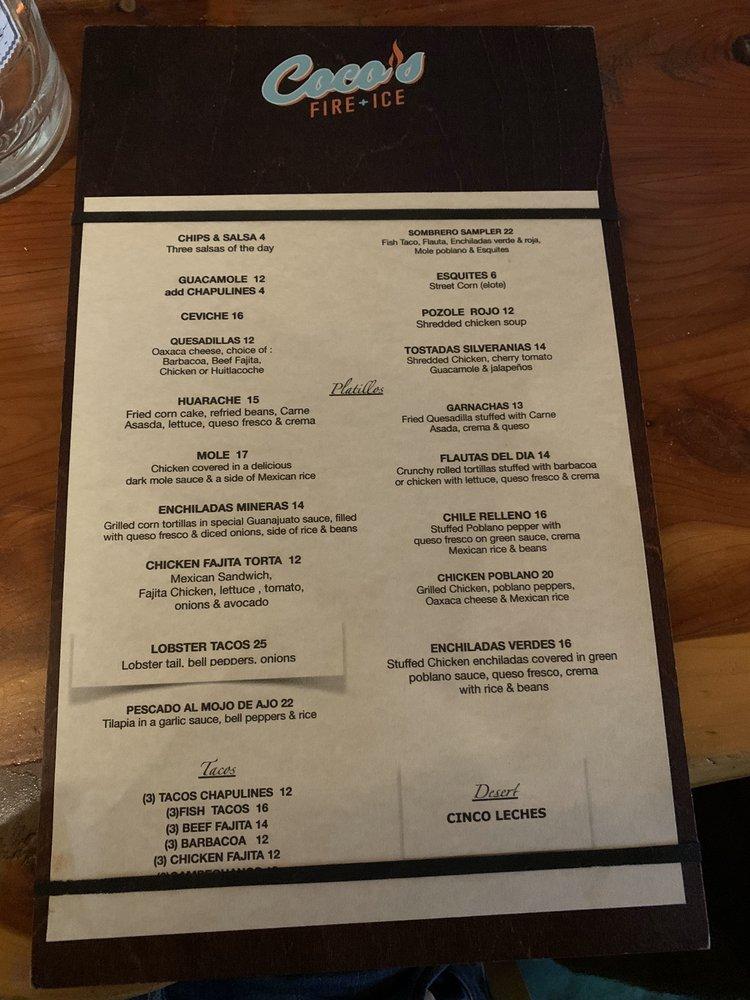 Coco's
FIRE + ICE
CHIPS & SALSA 4
Three salsas of the day
GUACAMOLE 12
add CHAPULINES 4
CEVICHE 16
QUESADILLAS 12
Oaxaca cheese, choice of :
Barbacoa, Beef Fajita,
Chicken or Huitlacoche
HUARACHE 15
Fried corn cake, refried beans, Carne
Asasda, lettuce, queso fresco & crema
MOLE 17
Chicken covered in a delicious
dark mole sauce & a side of Mexican rice
ENCHILADAS MINERAS 14
Grilled corn tortillas in special Guanajuato sauce, filled
with queso fresco & diced onions, side of rice & beans
CHICKEN FAJITA TORTA 12
Mexican Sandwich,
Fajita Chicken, lettuce , tomato,
onions & avocado
LOBSTER TACOS 25
Lobster tail, bell peppers, onions
PESCADO AL MOJO DE AJO 22
Tilapia in a garlic sauce, bell peppers & rice
Tacos
(3) TACOS CHAPULINES 12
(3)FISH TACOS 16
(3) BEEF FAJITA 14
(3) BARBACOA 12
(3) CHICKEN FAJITA 12
Platillos
SOMBRERO SAMPLER 22
Fish Taco, Flauta, Enchiladas verde & roja,
Mole poblano & Esquites
ESQUITES 6
Street Corn (elote)
POZOLE ROJO 12
Shredded chicken soup
TOSTADAS SILVERANIAS 14
Shredded Chicken, cherry tomato
Guacamole & jalapeños
GARNACHAS 13
Fried Quesadilla stuffed with Carne
Asada, crema & queso
FLAUTAS DEL DIA 14
Crunchy rolled tortillas stuffed with barbacoa
or chicken with lettuce, queso fresco & crema
CHILE RELLENO 16
Stuffed Poblano pepper with
queso fresco on green sauce, crema
Mexican rice & beans
CHICKEN POBLANO 20
Grilled Chicken, poblano peppers,
Oaxaca cheese & Mexican rice
ENCHILADAS VERDES 16
Stuffed Chicken enchiladas covered in green
poblano sauce, queso fresco, crema
with rice & beans
Desert
CINCO LECHES